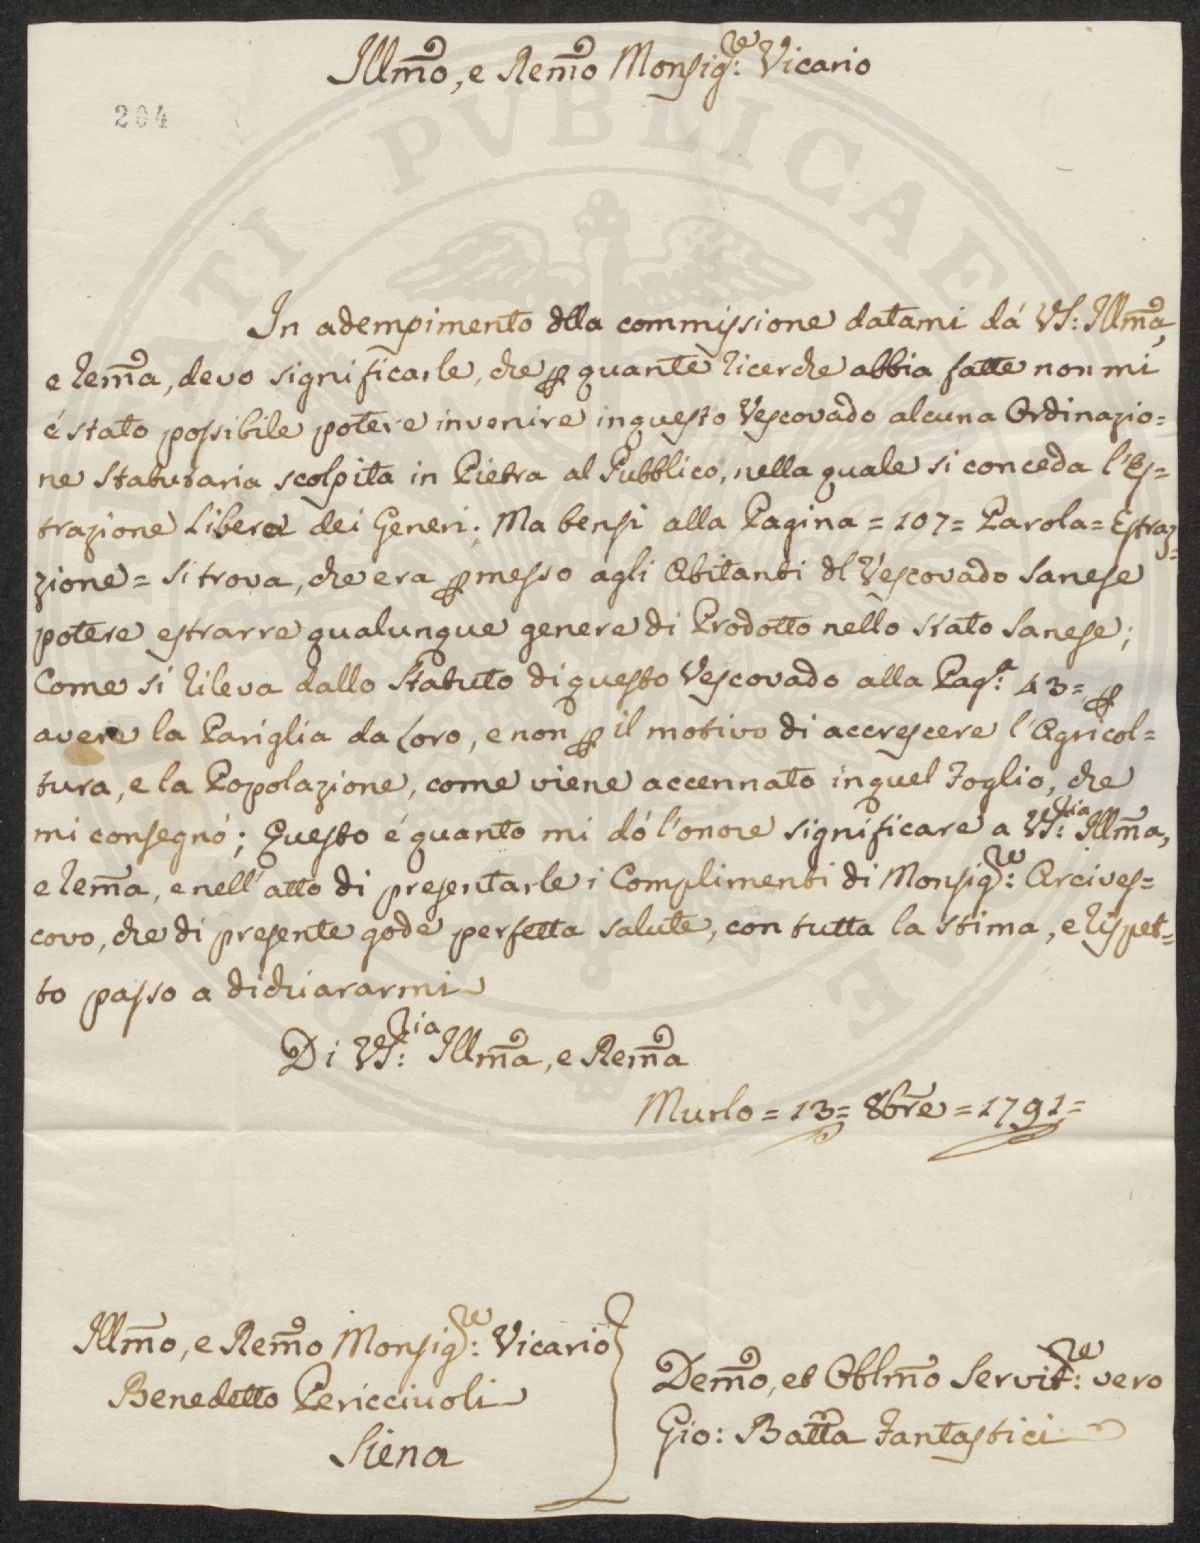 Illmo, e Remo Monsig:re Vicario
204
In adempimento dlla commissione datami dá VS: Illma,
e Rema, devo significarle, che p quante ricerche abbia fatte non mi
é stato possibile potere invenire in questo Vescovado alcuna Ordinazio=
ne Statutaria scolpita in Pietra al Pubblico, nella quale si conceda l'Es=
trazione Libera dei Generi; Ma bensi alla Pagina = 107 = Parola = Estraz=
zione = si trova, che era pmesso agli Abitanti dl Vescovado Sanese
potere estrarre qualunque genere di Prodotto nello stato Sanese;
Come si rileva dallo Statuto di questo Vescovado alla Pag:a 43=, p
avere la Pariglia da Loro, e non p il motivo di accrescere l'Agricol=
tura, e la Popolazione, come viene accennato in quel Foglio, che
mi consegnó; Questo é quanto mi dó l'onore significare a VS:ria Illma,
e Rema, e nell'atto di presentarle i Complimenti di Monsig:re Arcives=
covo, che di presente gode perfetta salute, con tutta la stima, e rispet=
to passo a dichiararmi
Di VS:ria Illma, e Rema
Murlo = 13 = 8bre = 1791 =
Illmo, e Remo Monsig:re Vicario
Benedetto Pericciuoli
Siena
Demo, et Oblmo Servit:re vero
Gio: Batta Fantastici